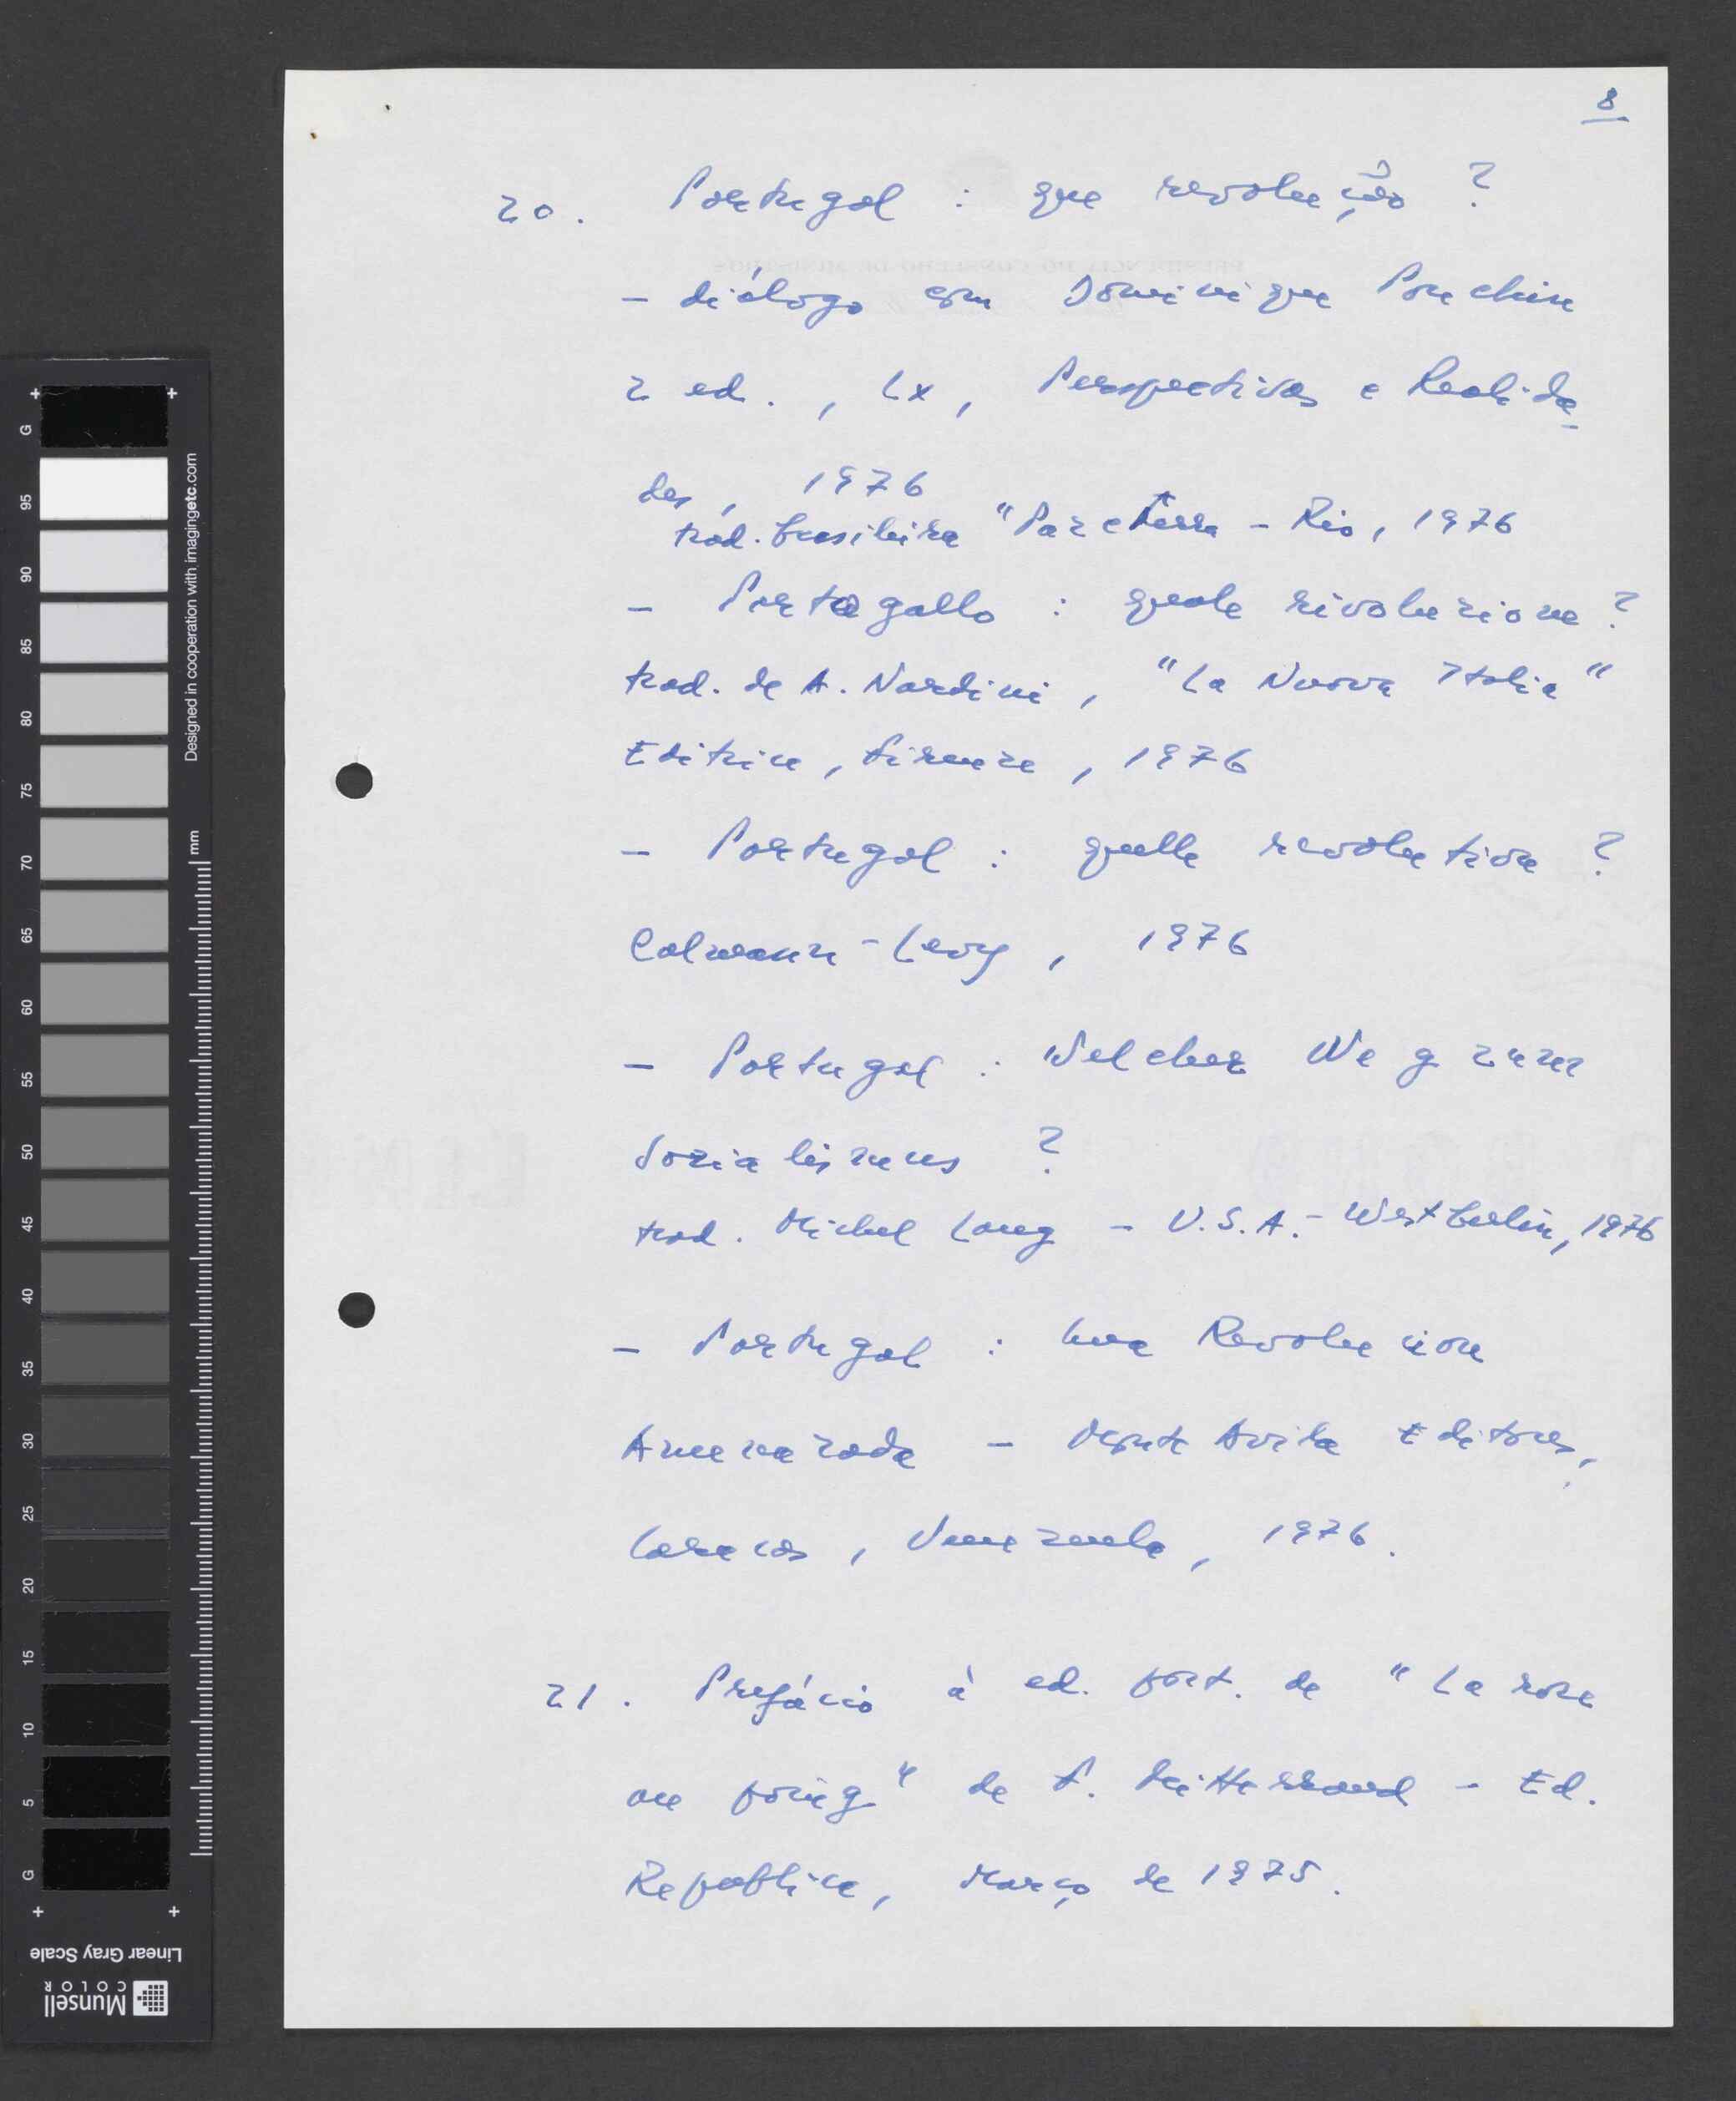 8
20. Portugal : que revolução ?
- diálogo com Dominique Pouchin
2 ed. , Lx, Perspectivas e Realida
des, 1976
trad. brasileira "Paz e Terra - Rio, 1976
- Portogallo : quale rivoluzione ?
trad. de A. Nardini, "La Nuova Italia"
Editrice, Firenze, 1976
- Portugal : quelle revolution ?
Calmann-Levy, 1976
- Portugal : Welcher Weg zum
Sozialismus ?
trad. Michel Lang - V.S.A. - Westberlin, 1976
- Portugal : una Revolucion
Amenazada - Monte Avila Editores,
Caracas, Venezuela, 1976.
21. Prefácio à ed. port. de "La rose
au poing" de F. Mitterrand - Ed.
Republica, Março de 1975.
PRESIDÊNCIA DO CONSELHO DE MINISTROS
G
95
90
85
80
75
70
65
60
55
50
45
40
35
30
25
20
15
10
5
G
Designed in cooperation with imagingetc.com
mm
Linear Gray Scale
Munsell
COLOR